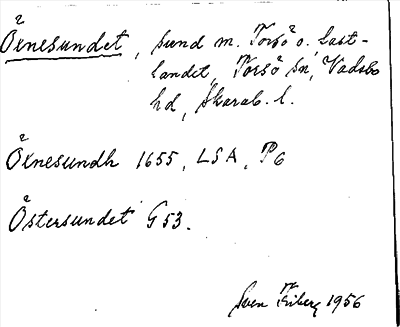 Öxnesundet, sund m. Torsö o. fast-
landet, Torsö sn, Vadsbo
hd, Skarab. l.
Öxnesundh 1655, LSA, P6
Östersundet G53.
Sven Friberg 1956